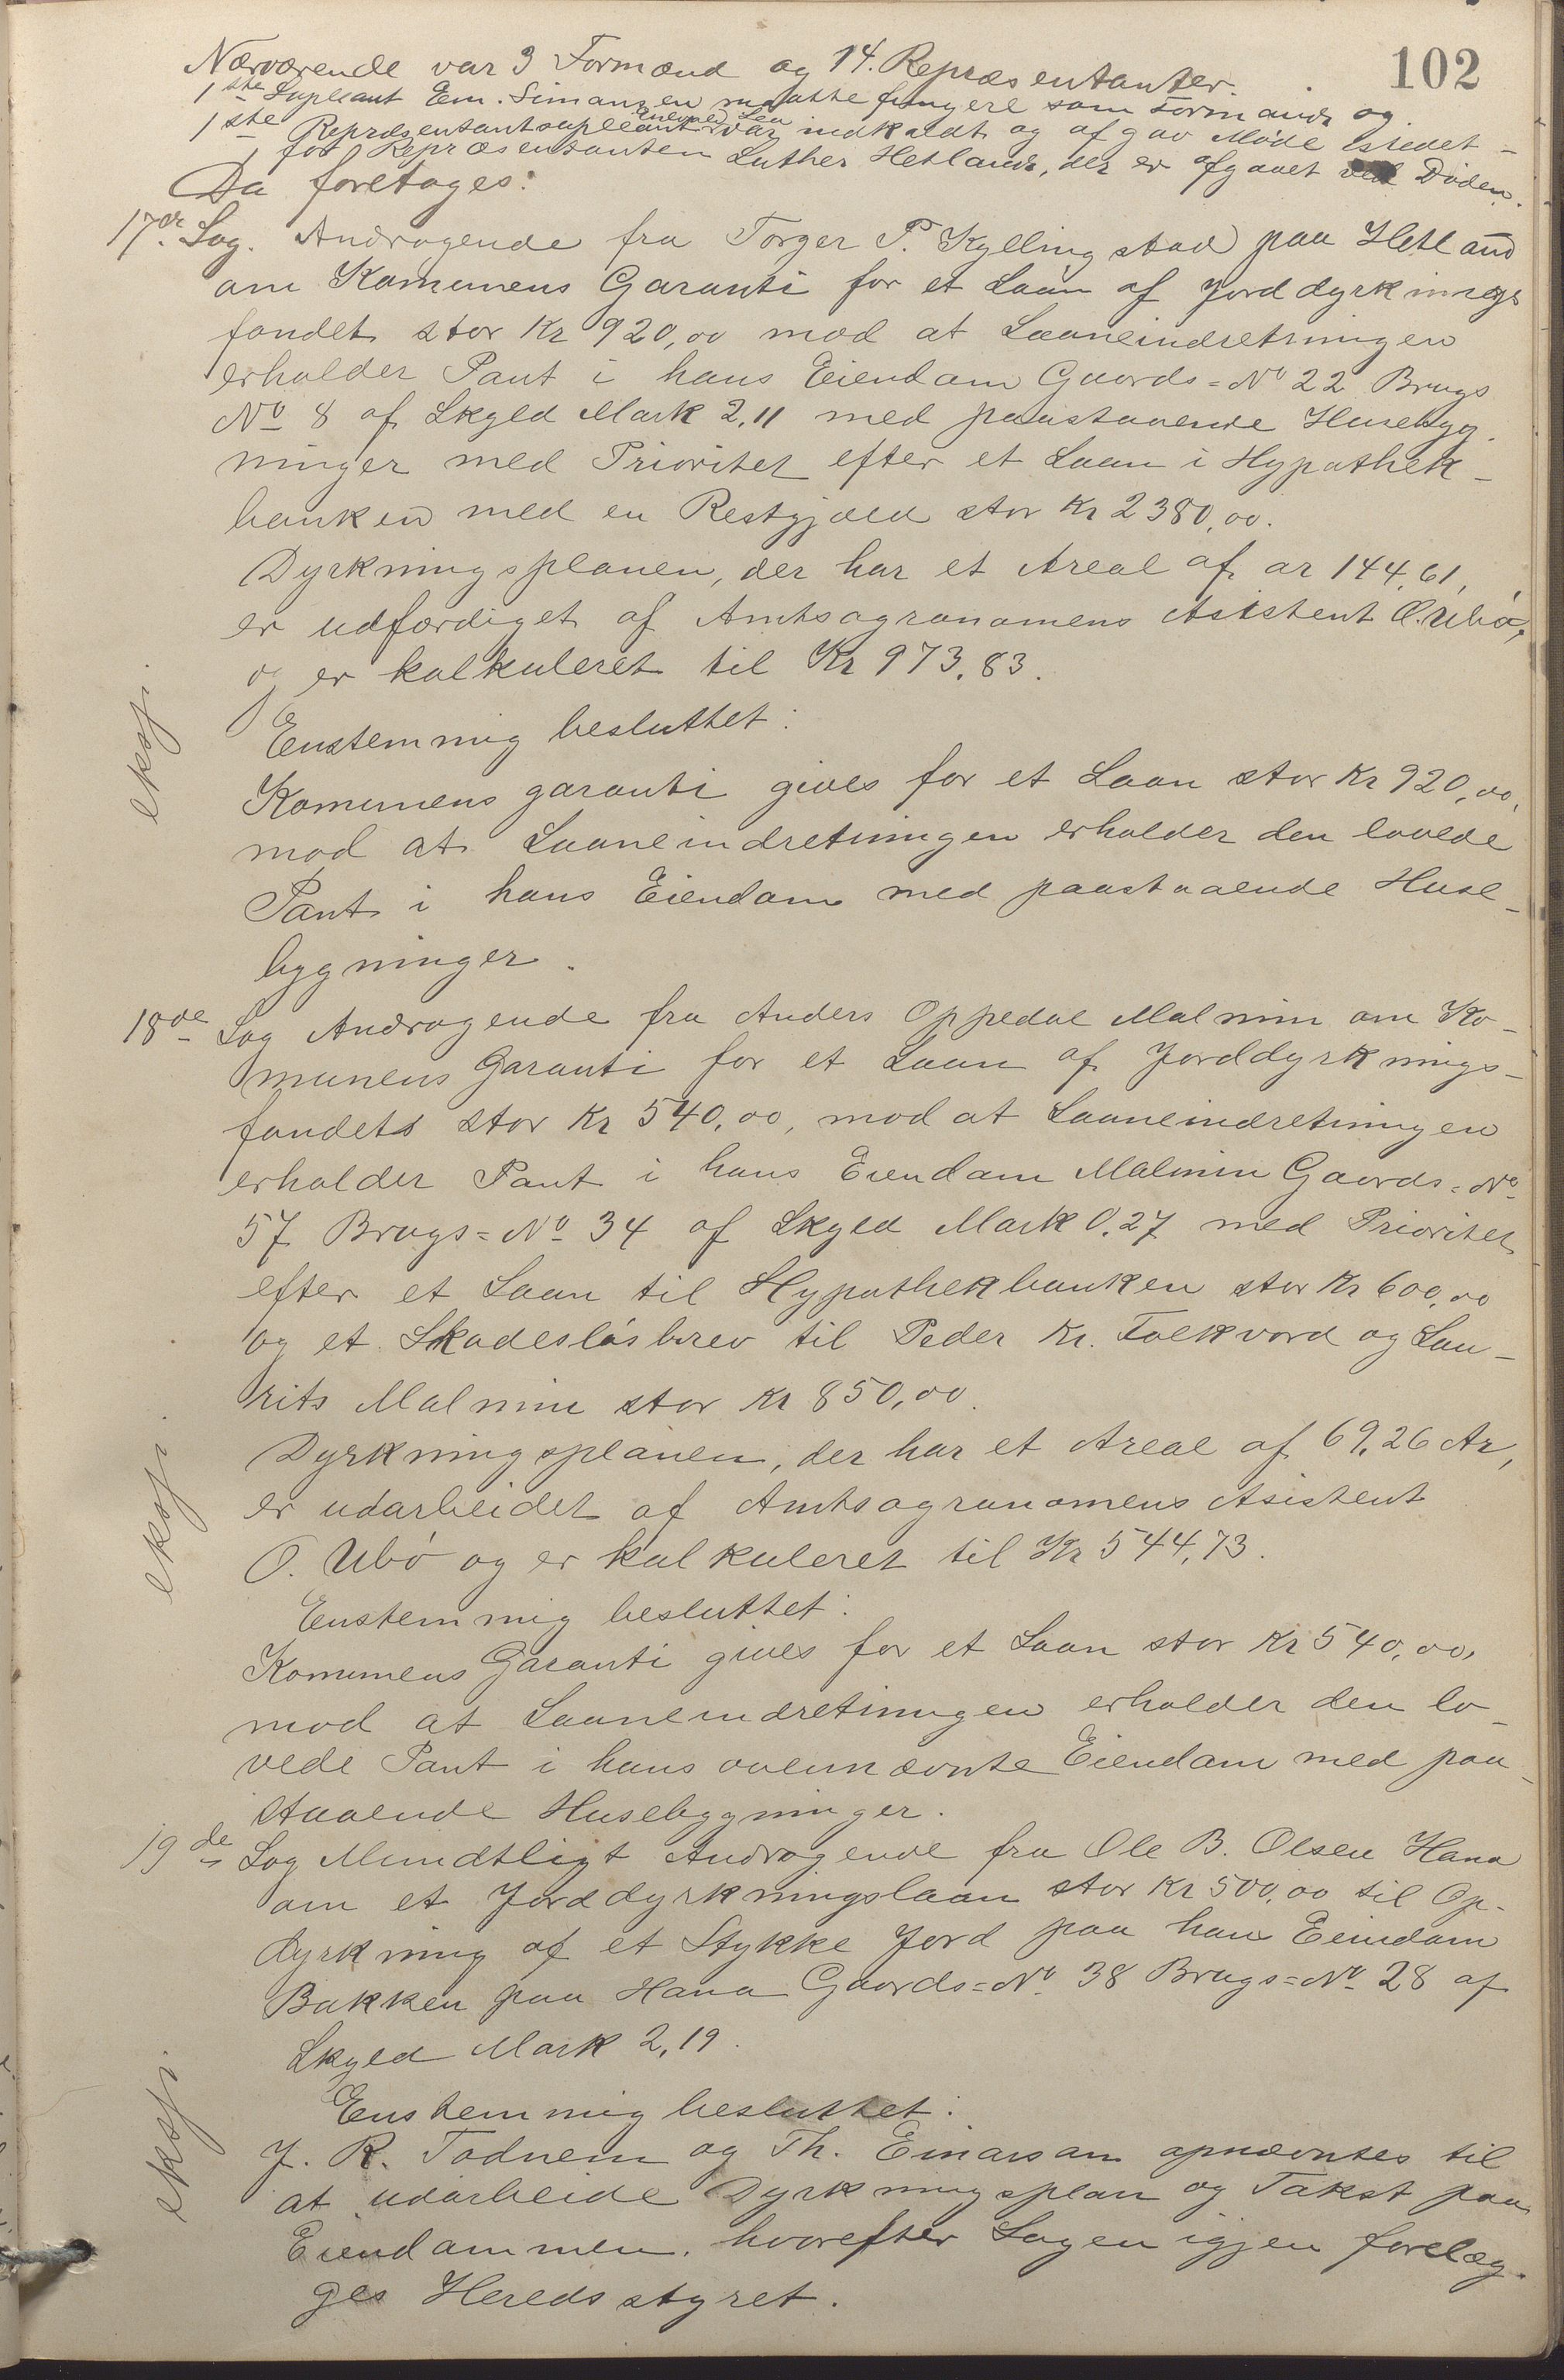 102
Nærværende var 3 Formænd og 14. Repræsentanter.
1ste Supleant Em. Simonsen maatte fungere som Formand og
1ste Repræsentantsupleant var indkaldt og afgav Møde istedet-
for Repræsentanten Luther Hetland, der er afgaaet ved Døden.
Da foretoges:
17de Sag. Andragende fra Torger P. Kyllingstad paa Hetland
om Komunens Garanti for et Laan af Jorddyrknings
fondet stor Kr 920,00 mod at Laaneindretningen
erholder Pant i hans Eiendom Gaards=No 22 Brugs
No 8 af Skyld Mark 2.11 med paastaaende Husebyg-
ninger med Prioritet efter et Laan i Hypothek-
banken med en Restgjæld stor Kr 2380,00.
Dyrkningsplanen, der har et Areal af ar 144,61,
er udfærdiget af Amtsagronomens Asistent O. Ubø,
og er kalkuleret til Kr 973,83.
Enstemmig besluttet:
eksp.
Komunens garanti gives for et Laan stor Kr 920,00,
mod at Laaneindretningen erholder den lovede
Pant i hans Eiendom med paastaaende Huse-
bygninger.
18de Sag Andragende fra Anders Oppedal Malmin om Ko-
munens Garanti for et Laan af Jorddyrknings-
fondets stor Kr 540,00, mod at Laaneindretningen
erholder Pant i hans Eiendom Malmin Gaards=No
57 Brugs=No 34 af Skyld Mark 0.27 med Prioritet
efter et Laan til Hypothekbanken stor Kr 600,00
og et Skadesløsbrev til Peder Kr. Folkvord og Lau-
rits Malmin stor Kr 850,00.
Dyrkningsplanen, der har et Areal af 69,26 Ar,
er udarbeidet af Amtsagronomens Asistent
eksp.
O. Ubø og er kalkuleret til Kr 544,73.
Enstemmig besluttet:
Komunens Garanti gives for et Laan stor Kr 540,00,
mod at Laaneindretningen erholder den lo-
vede Pant i hans ovennævnte Eiendom med paa-
staaende Husebygninger.
19de Sag Mundtligt Andragende fra Ole B. Olsen Hana
om et Jorddyrkningslaan stor Kr 500,00 til Op-
dyrkning af et Stykke Jord paa hans Eiendom
Bakken paa Hana Gaards=No 38 Brugs=No 28 af
Skyld Mark 2,19.
Enstemmig besluttet:
eksp.
J. R. Todnem og Th. Einarson opnævntes til
at udarbeide Dyrkningsplan og Takst paa
Eiendommen, hvorefter Sagen igjen forelæg-
ges Heredsstyret.